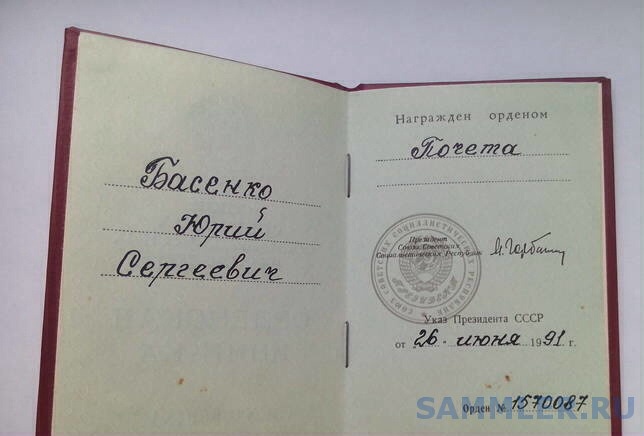 Басенко
Юрий
Сергеевич
Награжден орденом
Почета
Президент
Союза Советских
Социалистических Республик
М. Горбачев
Указ Президента СССР
от 26 июня 1991 г.
Орден № 1570087
SAMMLER.RU